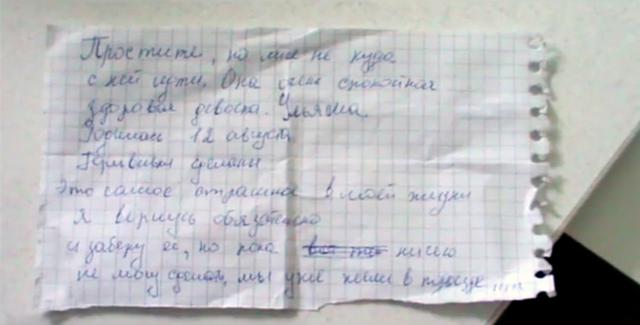 Простите, но мне не куда
с ней идти. Она очень спокойная
здоровая девочка. Ульяна.
Родилась 12 августа
Прививки сделаны
Это самое страшное в моей жизни
Я вернусь обязательно
и заберу ее, но пока ничего
не могу сделать, мы уже жили в